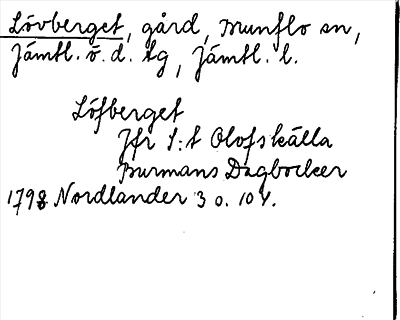 Lövberget, gård, Munflo sn,
Jämtl. ö. d. tg, Jämtl. l.
Löfberget
Jfr S:t Olofskälla
Burmans Dagböcker
1798 Nordlander 3 o. 104.